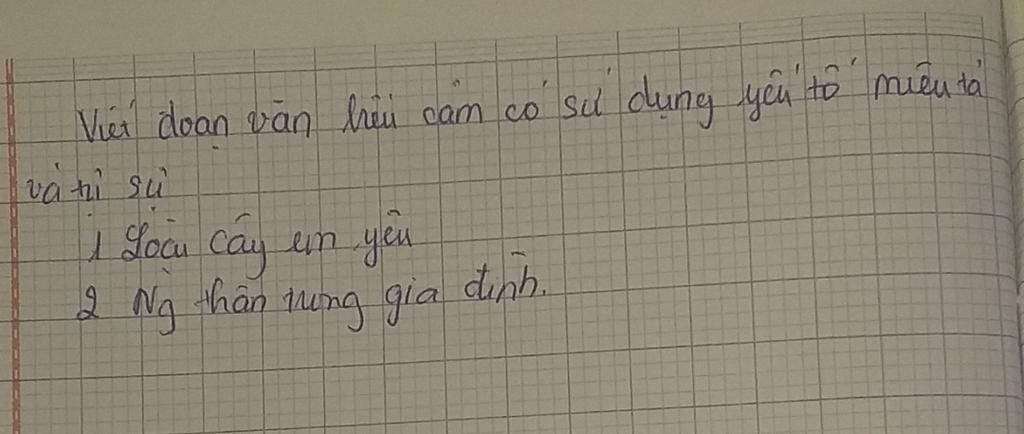 Viết đoạn văn biểu cảm có sử dụng yếu tố miêu tả
và tự sự
1 Loài cây em yêu
2 Ng thân trong gia đình.